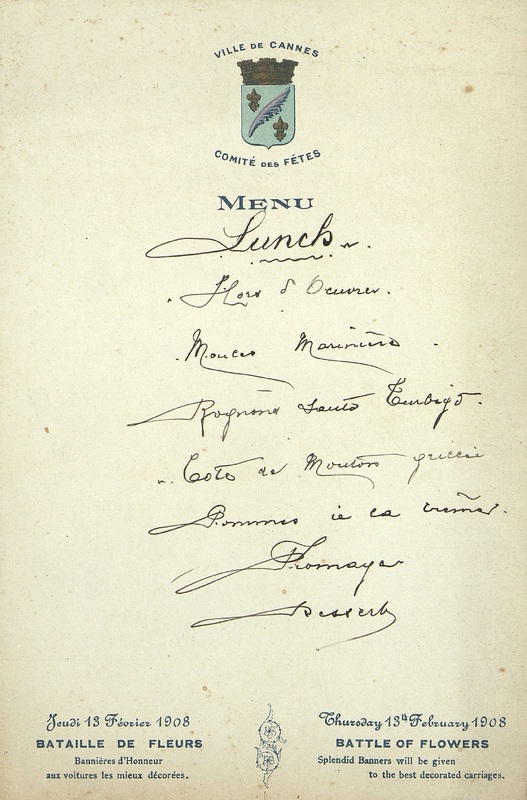 VILLE DE CANNES
COMITÉ DES FÊTES
MENU
Lunch
Hors d'Oeuvres.
Moules Marinière
Rognons Sautés Turbigo.
Cote de Mouton grillée
Pommes à la crème.
Fromages
Desserts
Jeudi 13 Février 1908
BATAILLE DE FLEURS
Bannières d'Honneur
aux voitures les mieux décorées.
Thursday 13th February 1908
BATTLE OF FLOWERS
Splendid Banners will be given
to the best decorated carriages.